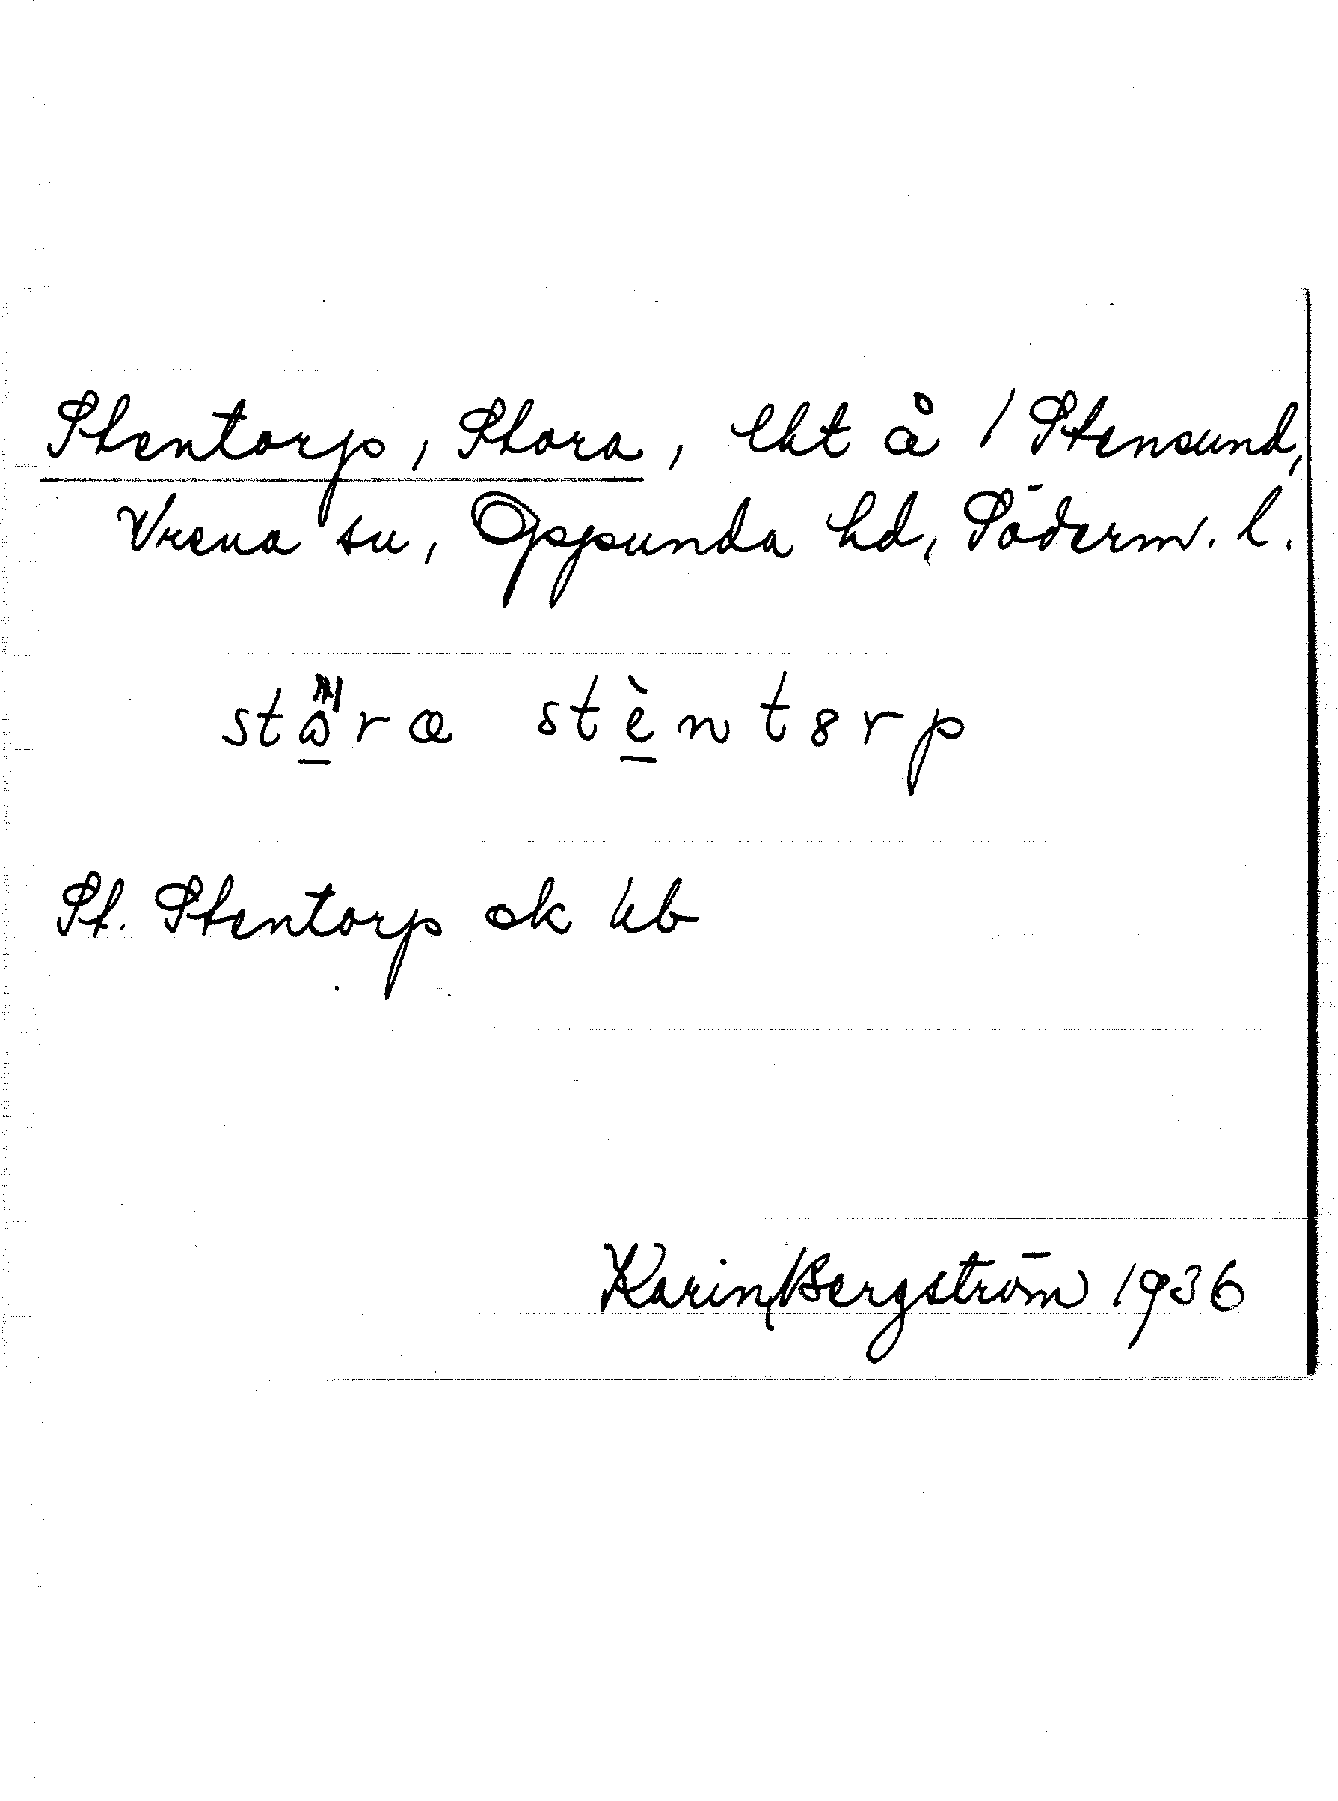 Stentorp, Stora, lht å 1 Stensund,
Vrena sn, Oppunda hd, Söderm. l.
stèntorp
St. Stentorp ek hb
Karin Bergström 1936